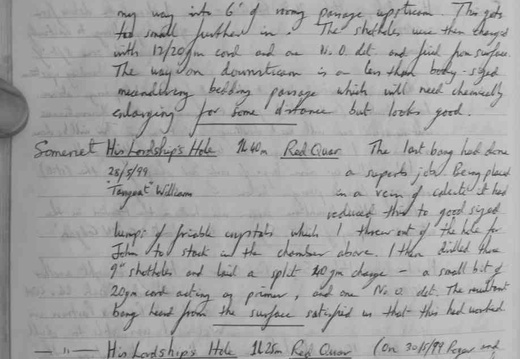 my way into 6' of roomy passage upstream. This gets
too small further in. The shotholes were then charged
with 12/20gm cord and one No. 0. det. and fired from surface.
The way on downstream is a less than body-sized
meandering bedding passage which will need chemically
enlarging for some distance but looks good.
Somerset His Lordship's Hole 1hr 40m Red Quar The last bang had done
28/5/99 a superb job. Being placed
"Tangent" Williams in a vein of calcite it had
reduced this to good sized
lumps of friable crystals which I threw out of the hole for
John to stack in the chamber above. I then drilled three
9" shotholes and laid a split 40gm charge - a small bit of
20gm cord acting as primer, and one No. 0. det. The resultant
bang heard from the surface satisfied us that this had worked.
— " — His Lordship's Hole 1hr 25m Red Quar (On 30/5/99 Roger and